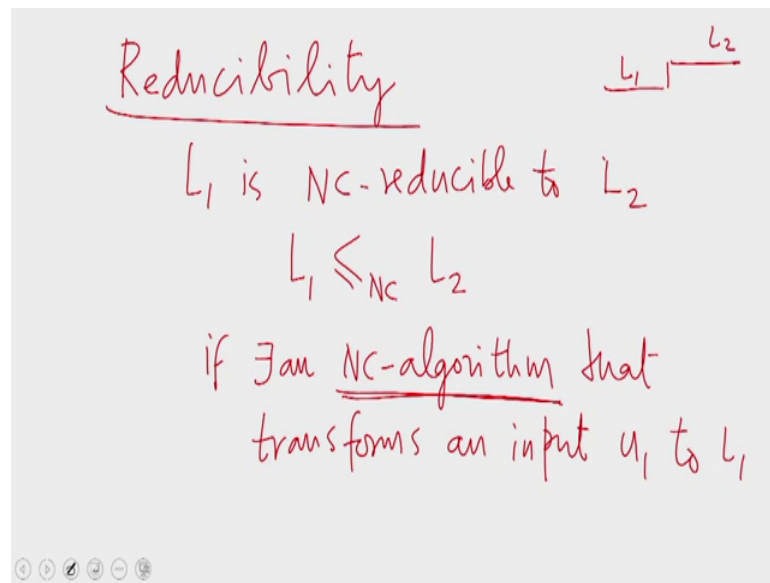 Reducibility
L₁ L₂
L₁ is NC-reducible to L₂
L₁ ≤NC L₂
if ∃ an NC-algorithm that
transforms an input u₁ to L₁